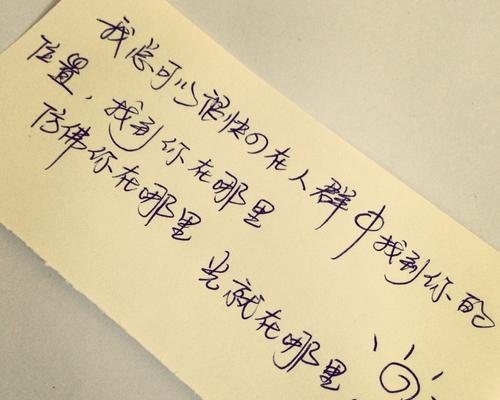 我总可以很快的在人群中找到你的
位置，找到你在哪里
仿佛你在哪里
光就在哪里